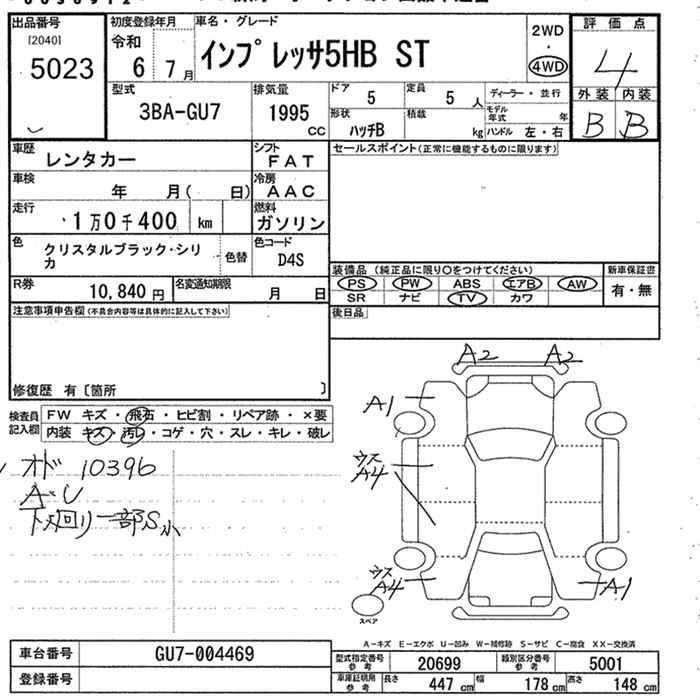 出品番号
[2040]
5023
初度登録年月
令和
6 7月
車名・グレード
インプレッサ5HB ST
2WD
・
4WD
評価点
4
外装 内装
B B
型式
3BA-GU7
排気量
1995
CC
ドア 5
定員 5人
ディーラー・並行
形状
ハッチB
積載 kg
モデル年式 年
ハンドル 左・右
車歴
レンタカー
シフト
FAT
セールスポイント(正常に機能するものに限ります)
車検
年 月( 日)
冷房
AAC
走行
1万0千400 km
燃料
ガソリン
色
クリスタルブラック・シリカ
色替
色コード
D4S
装備品 (純正品に限り〇をつけてください)
新車保証書
PS PW ABS エアB AW
有・無
SR ナビ TV カワ
R券
10,840円
名変通知期限
月 日
注意事項申告欄(不具合内容等は具体的に記入して下さい)
後日品
修復歴 有〔箇所 〕
検査員記入欄
FW キズ・飛石・ヒビ割・リペア跡・×要
内装 キズ・汚レ・コゲ・穴・スレ・キレ・破レ
オド 10396
A・U
下廻り一部S小
A2 A2
A1
ウス
A4
ウス
A4
A1
スペア
A-キズ E-エクボ U-凹み W-補修跡 S-サビ C-腐食 XX-交換済
車台番号
GU7-004469
登録番号
型式指定番号参考
20699
類別区分番号参考
5001
車庫証明用参考
長さ 447cm
幅 178cm
高さ 148cm